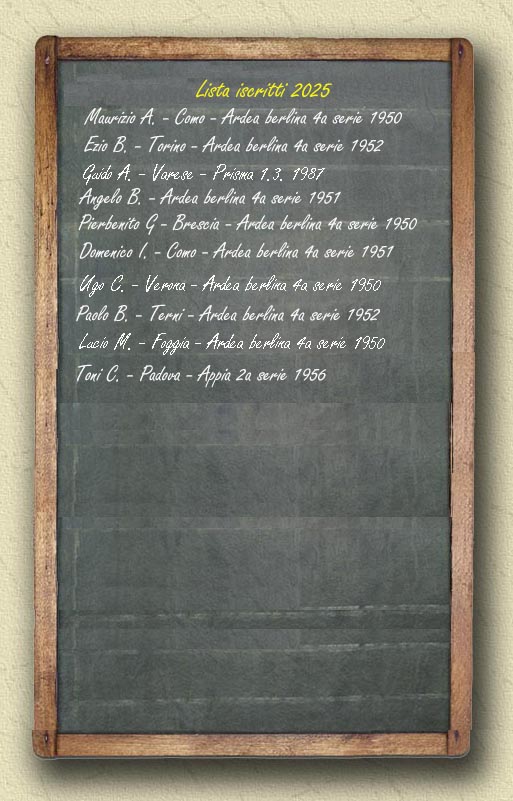 Lista iscritti 2025
Maurizio A. - Como - Ardea berlina 4a serie 1950
Ezio B. - Torino - Ardea berlina 4a serie 1952
Guido A. - Varese - Prisma 1.3. 1987
Angelo B. - Ardea berlina 4a serie 1951
Pierbenito G - Brescia - Ardea berlina 4a serie 1950
Domenico I. - Como - Ardea berlina 4a serie 1951
Ugo C. - Verona - Ardea berlina 4a serie 1950
Paolo B. - Terni - Ardea berlina 4a serie 1952
Lucio M. - Foggia - Ardea berlina 4a serie 1950
Toni C. - Padova - Appia 2a serie 1956